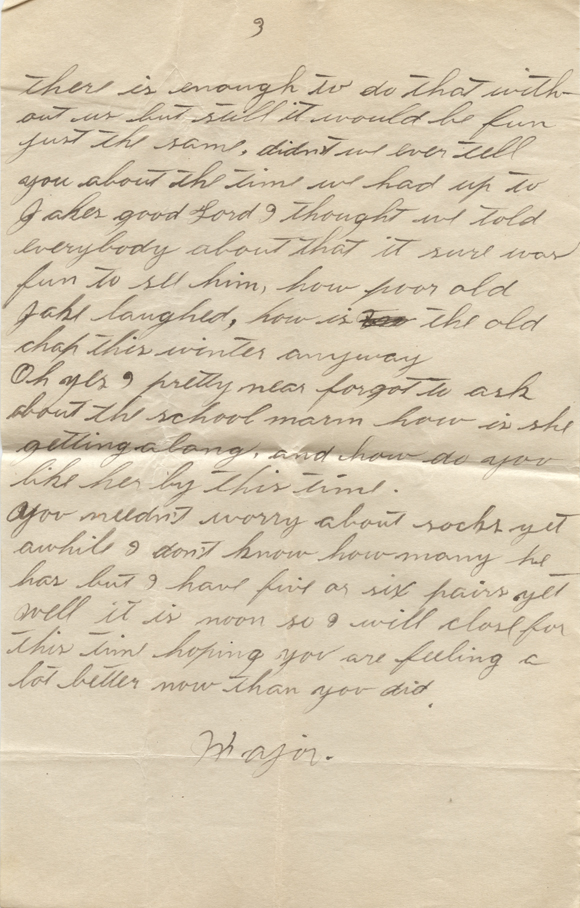 3
there is enough to do that with-
out us but still it would be fun
just the same, didn't we ever tell
you about the time we had up to
Jakes good Lord I thought we told
everybody about that it sure was
fun to see him, how poor old
Jake laughed, how is the old
chap this winter anyway
Oh yes I pretty near forgot to ask
about the school marm how is she
getting along, and how do you
like her by this time.
You needn't worry about socks yet
awhile I don't know how many he
has but I have five or six pairs yet
well it is noon so I will close for
this time hoping you are feeling a
lot better now than you did.
Major.